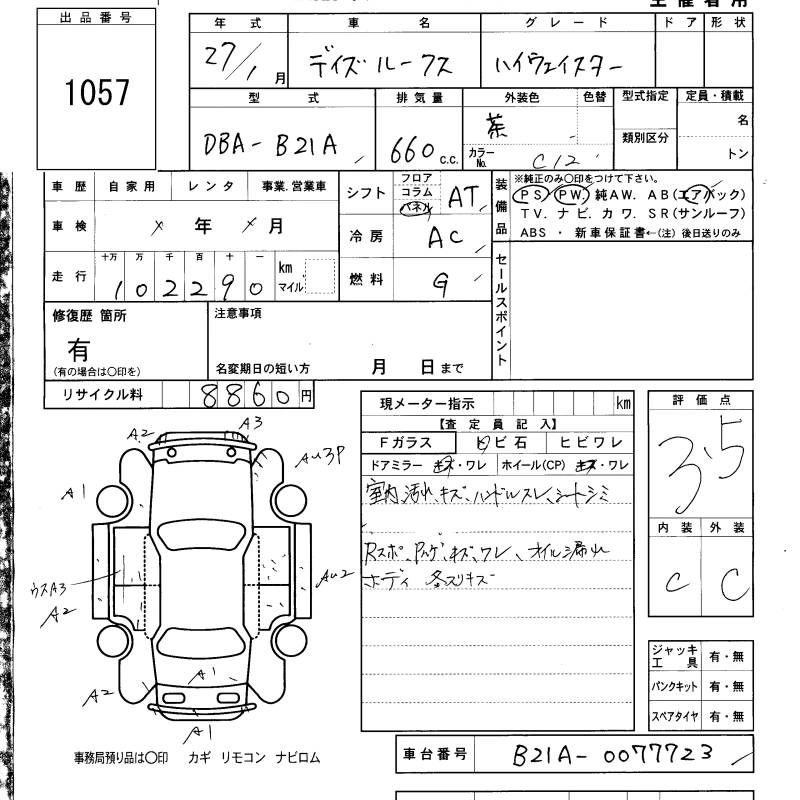 出品番号
1057
年式 車名 グレード ドア 形状
27/1月 デイズルークス ハイウェイスター
型式 排気量 外装色 色替 型式指定 定員・積載
DBA-B21A 660c.c. 茶 類別区分 名
カラーNo. C12 トン
車歴 自家用 レンタ 事業.営業車
車検 × 年 × 月
走行 十万 万 千 百 十 一
102290 km マイル
シフト フロア コラム パネル AT
冷房 AC
燃料 G
装備品
※純正のみ〇印をつけて下さい。
PS. PW. 純AW. AB(エアバック)
TV. ナビ. カワ. SR(サンルーフ)
ABS ・ 新車保証書←(注) 後日送りのみ
セールスポイント
修復歴 箇所
有
(有の場合は〇印を)
注意事項
名変期日の短い方 月 日まで
リサイクル料 8860円
現メーター指示 km
【査定員記入】
Fガラス トビ石 ヒビワレ
ドアミラー キズ・ワレ ホイール(CP) キズ・ワレ
室内、汚れ、キズ、ハンドルスレ、シートシミ
Rスポ、Rゲ、キズ、ワレ、オイル漏れ
ボディ 各スリキズ
評価点
3.5
内装 外装
C C
A2 A3
AU3P
A1
ウスA3
A2
AU2
A2
A1
A1
ジャッキ工具 有・無
パンクキット 有・無
スペアタイヤ 有・無
事務局預り品は〇印 カギ リモコン ナビロム
車台番号 B21A-0077723